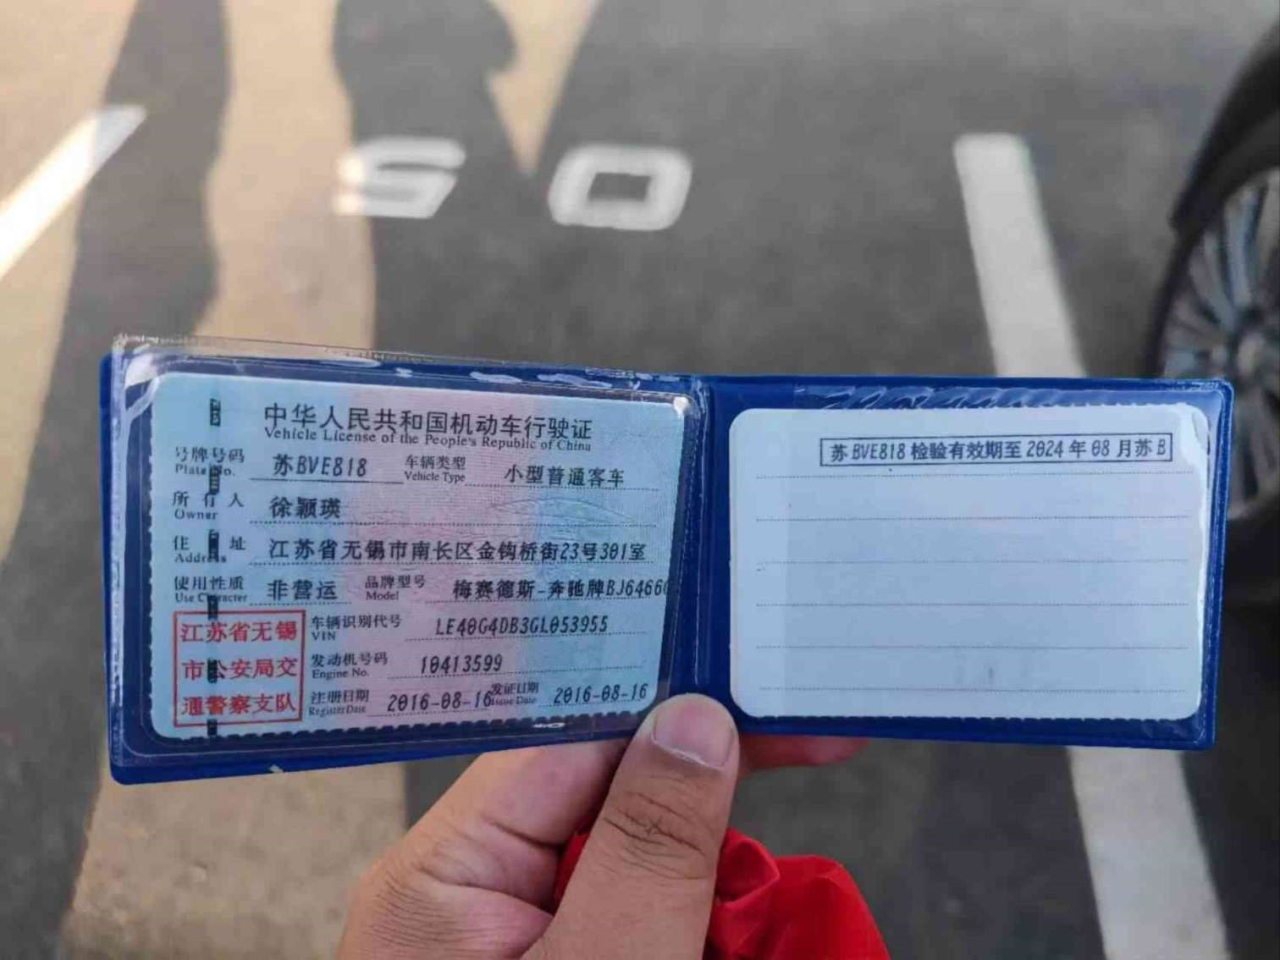 50
中华人民共和国机动车行驶证
Vehicle License of the People's Republic of China
号牌号码 苏BVE818 车辆类型 小型普通客车
Plate No. Vehicle Type
所有人 徐颖瑛
Owner
住址 江苏省无锡市南长区金钩桥街23号301室
Address
使用性质 非营运 品牌型号 梅赛德斯-奔驰牌BJ6466
Use Character Model
江苏省无锡
市公安局交
通警察支队
车辆识别代号 LE40G4DB3GL053955
VIN
发动机号码 10413599
Engine No.
注册日期 2016-08-16 发证日期 2016-08-16
Register Date Issue Date
苏BVE818 检验有效期至 2024 年 08 月苏 B